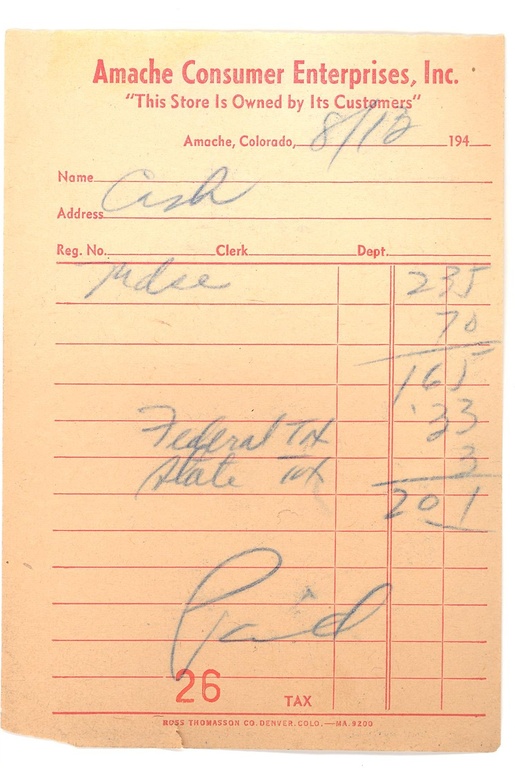 Amache Consumer Enterprises, Inc.
"This Store Is Owned by Its Customers"
Amache, Colorado, 8/12 194
Name Cash
Address
Reg. No. Clerk Dept.
Mdse 235
70
165
Federal TX 33
State TX 3
201
Paid
26 TAX
ROSS THOMASSON CO. DENVER, COLO.—MA. 9200